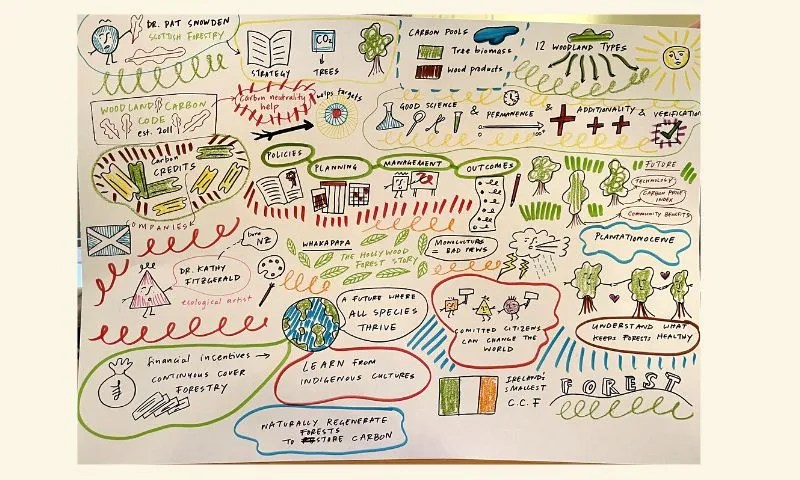 DR. PAT SNOWDEN
SCOTTISH FORESTRY
STRATEGY
CO2
TREES
CARBON POOLS
Tree biomass
wood products
12 WOODLAND TYPES
WOODLAND CARBON
CODE
est. 2011
Carbon neutrality
help
targets
GOOD SCIENCE
&
PERMANENCE
&
ADDITIONALITY
&
VERIFICATION
Carbon
CREDITS
COMPANIES
POLICIES
PLANNING
MANAGEMENT
OUTCOMES
FUTURE
TECHNOLOGY
CARBON PRICE
INDEX
COMMUNITY BENEFITS
NZ
DR. KATHY
FITZGERALD
ecological artist
WHAKAPAPA
THE HOLLYWOOD
FOREST STORY
MONOCULTURE
= BAD NEWS
PLANTATIONOCENE
A FUTURE WHERE
ALL SPECIES
THRIVE
COMITTED CITIZENS
CAN CHANGE THE
WORLD
UNDERSTAND WHAT
KEEPS FORESTS HEALTHY
£
financial incentives →
CONTINUOUS COVER
FORESTRY
LEARN FROM
INDIGENOUS CULTURES
IRELAND'S
SMALLEST
C.C.F
FOREST
NATURALLY REGENERATE
FORESTS
TO STORE CARBON